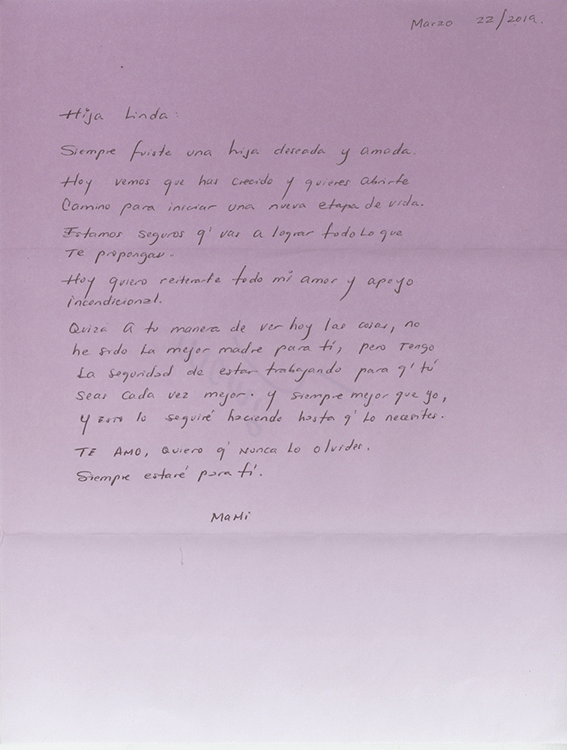 Marzo 22/2019.
Hija Linda:
Siempre fuiste una hija deseada y amada.
Hoy vemos que has crecido y quieres abrirte
Camino para iniciar una nueva etapa de vida.
Estamos seguros q' vas a lograr todo lo que
Te propongas.
Hoy quiero reiterarte todo mi amor y apoyo
incondicional.
Quiza A tu manera de ver hoy las cosas, no
he sido la mejor madre para tí, pero Tengo
La seguridad de estar trabajando para q' tú
seas cada vez mejor. y siempre mejor que yo,
y esto lo seguiré haciendo hasta q' lo necesites.
TE AMO, Quiero q' Nunca Lo olvides.
Siempre estaré para tí.
MaMi